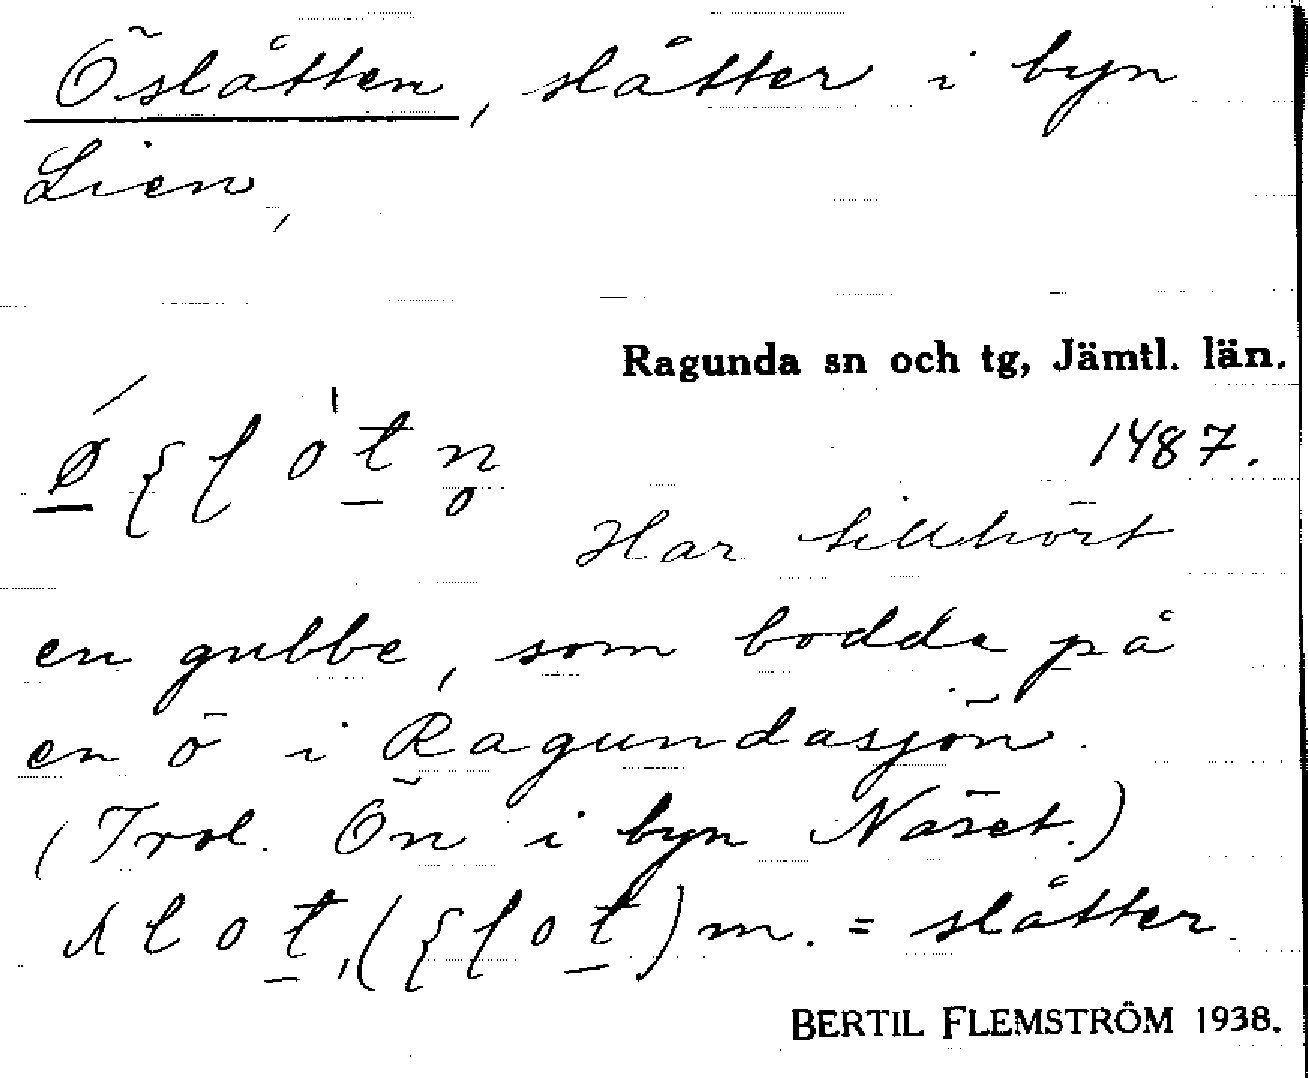 Öslåtten, slåtter i byn
Lien,
Ragunda sn och tg, Jämtl. län.
1487.
Har tillhört
en gubbe, som bodde på
en ö i Ragundasjön.
(Trol. Ön i byn Näset.)
slot, m. = slåtter
BERTIL FLEMSTRÖM 1938.